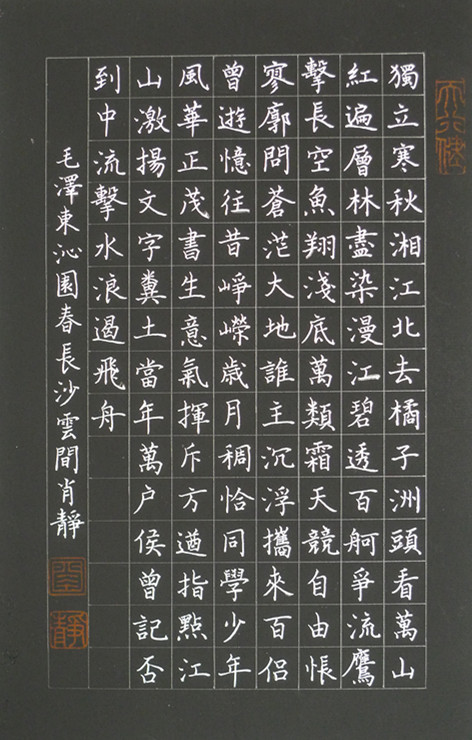 獨立寒秋湘江北去橘子洲頭看萬山
紅遍層林盡染漫江碧透百舸爭流鷹
擊長空魚翔淺底萬類霜天競自由悵
寥廓問蒼茫大地誰主沉浮攜來百侶
曾遊憶往昔崢嶸歳月稠恰同學少年
風華正茂書生意氣揮斥方遒指點江
山激揚文字糞土當年萬户侯曾記否
到中流擊水浪遏飛舟
毛澤東沁園春長沙雲間肖靜
天行健
靜